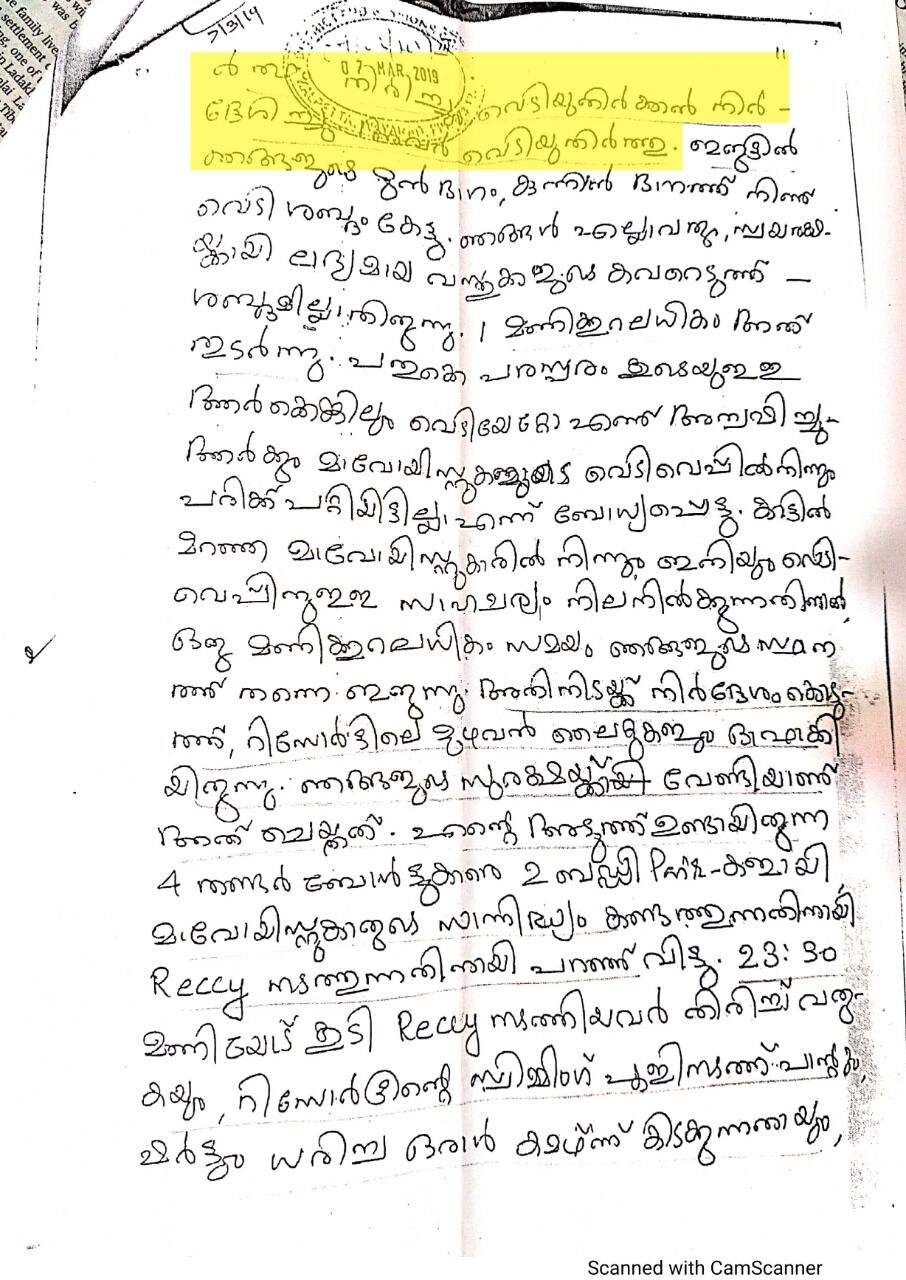 7/3/19
11
07 MAR 2019
വെടിയുതിർക്കാൻ നിർ-
ദ്ദേശി വെടിയുതിർത്തു. ഇരുട്ടിൽ
ഞങ്ങളുടെ മുൻ ഭാഗം, കുന്നിൻ ഭാഗത്ത് നിന്ന്
വെടി ശബ്ദം കേട്ടു. ഞങ്ങൾ എല്ലാവരും, സ്വയരക്ഷ-
യ്ക്കായി ലഭ്യമായ വസ്തുക്കളുടെ കവറെടുത്ത് –
ശബ്ദമില്ലാതിരുന്നു. 1 മണിക്കൂറലധികം അത്
തുടർന്നു. പതുക്കെ പരസ്പരം കൂടെയുള്ള
ആർക്കെങ്കിലും വെടിയേറ്റോ എന്ന് അന്വേഷിച്ചു-
ആർക്കും മാവോയിസ്റ്റുകളുടെ വെടിവെപ്പിൽനിന്നും
പരിക്ക് പറ്റിയിട്ടില്ലാ എന്ന് ബോധ്യപ്പെട്ടു. കാട്ടിൽ
മറഞ്ഞ മാവോയിസ്റ്റുകാരിൽ നിന്നും ഇനിയും വെടി-
വെപ്പിനുള്ള സാഹചര്യം നിലനിൽക്കുന്നതിനാൽ,
ഒരു മണിക്കൂറലധികം സമയം ഞങ്ങളുടെ സ്ഥാന
ത്ത് തന്നെ ഇരുന്നു. അതിനിടയ്ക്ക് നിർദ്ദേശം കൊടു-
ത്ത്, റിസോർട്ടിലെ മുഴുവൻ ലൈറ്റുകളും ഓഫാക്കി
യിരുന്നു. ഞങ്ങളുടെ സുരക്ഷയ്ക്ക് വേണ്ടിയാണ്
അത് ചെയ്തത്. എന്റെ അടുത്ത് ഉണ്ടായിരുന്ന
4 തണ്ടർ ബോൾട്ടുകാരെ 2 ബഡ്ഡി Pair-കളായി
മാവോയിസ്റ്റുകാരുടെ സാന്നിദ്ധ്യം കണ്ടെത്തുന്നതിനായി
Reccy നടത്തുന്നതിനായി പറഞ്ഞ് വിട്ടു. 23:30
മണിയോട് കൂടി Reccy നടത്തിയവർ തിരിച്ച് വരു-
കയും, റിസോർട്ടിന്റെ സ്വിമ്മിംഗ് പൂളിനടുത്ത് പാന്റും,
ഷർട്ടും ധരിച്ച ഒരാൾ കമഴ്ന്ന് കിടക്കുന്നതായും,
Scanned with CamScanner